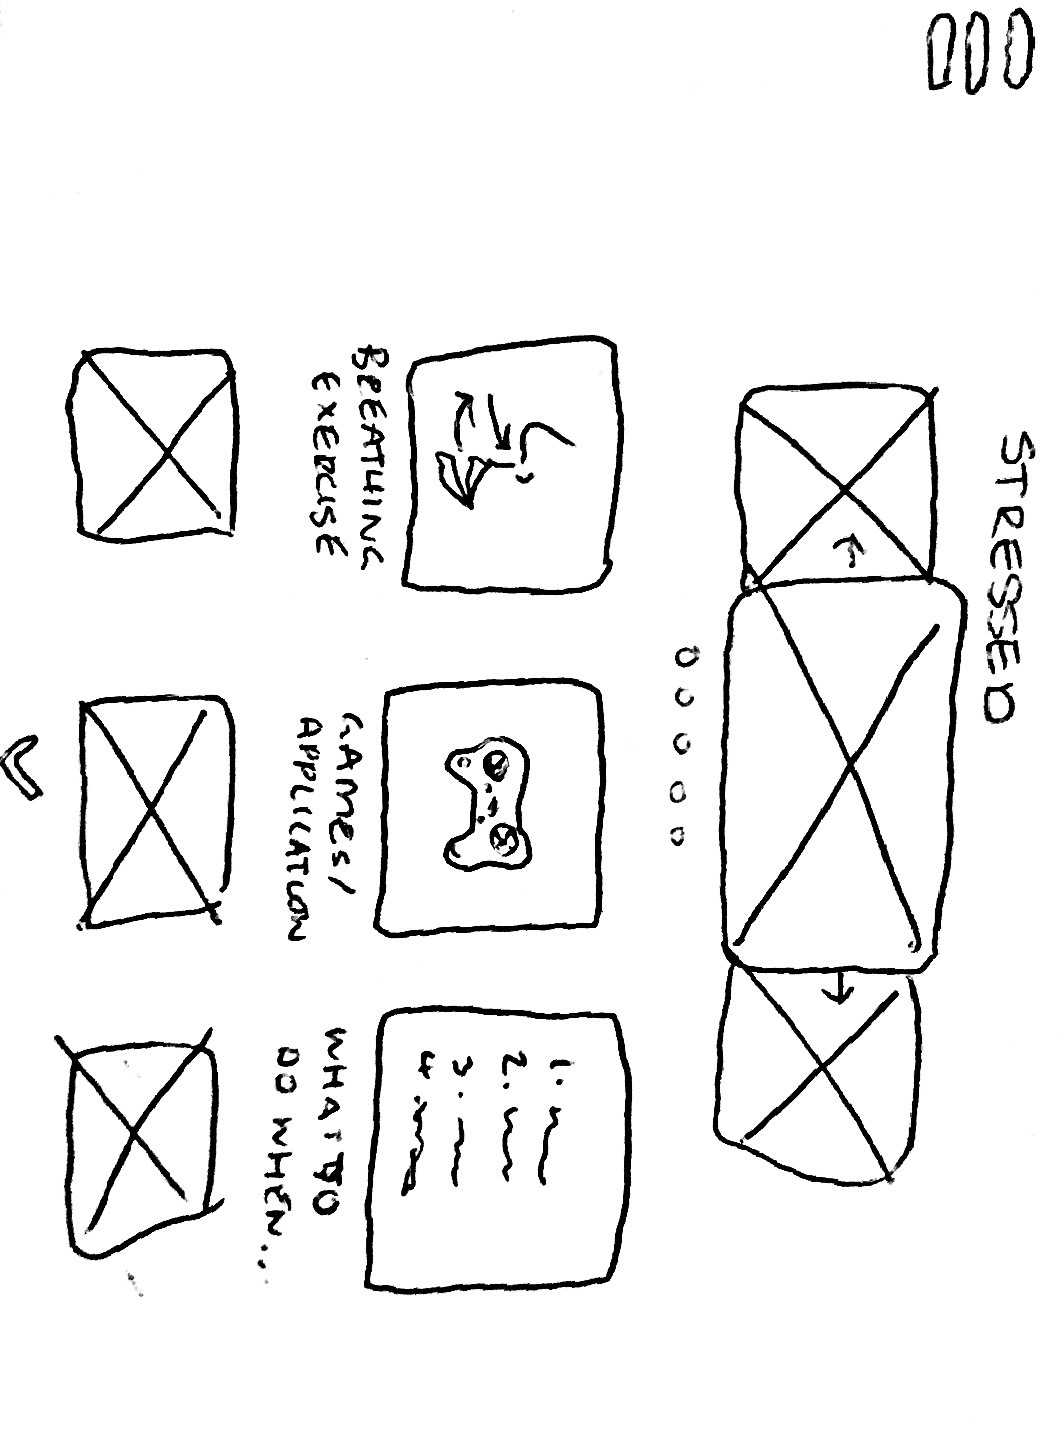 STRESSED
1.
2.
3.
4.
BREATHING
EXERCISE
GAMES/
APPLICATION
WHAT TO
DO WHEN...